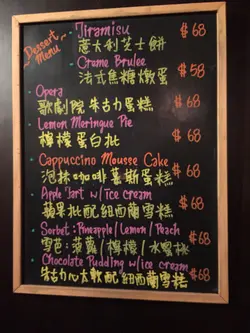 Dessert Menu
Tiramisu $68
意大利芝士餅
Creme Brulee
法式焦糖燉蛋 $58
Opera
歌劇院朱古力蛋糕 $68
Lemon Meringue Pie
檸檬蛋白批 $68
Cappuccino Mousse Cake
泡沫咖啡慕斯蛋糕 $68
Apple Tart w/ice cream
蘋果批配紐西蘭雪糕 $68
Sorbet: Pineapple / Lemon / Peach
雪芭:菠蘿/檸檬/水蜜桃 $68
Chocolate Pudding w/ice cream
朱古力心太軟配紐西蘭雪糕 $68